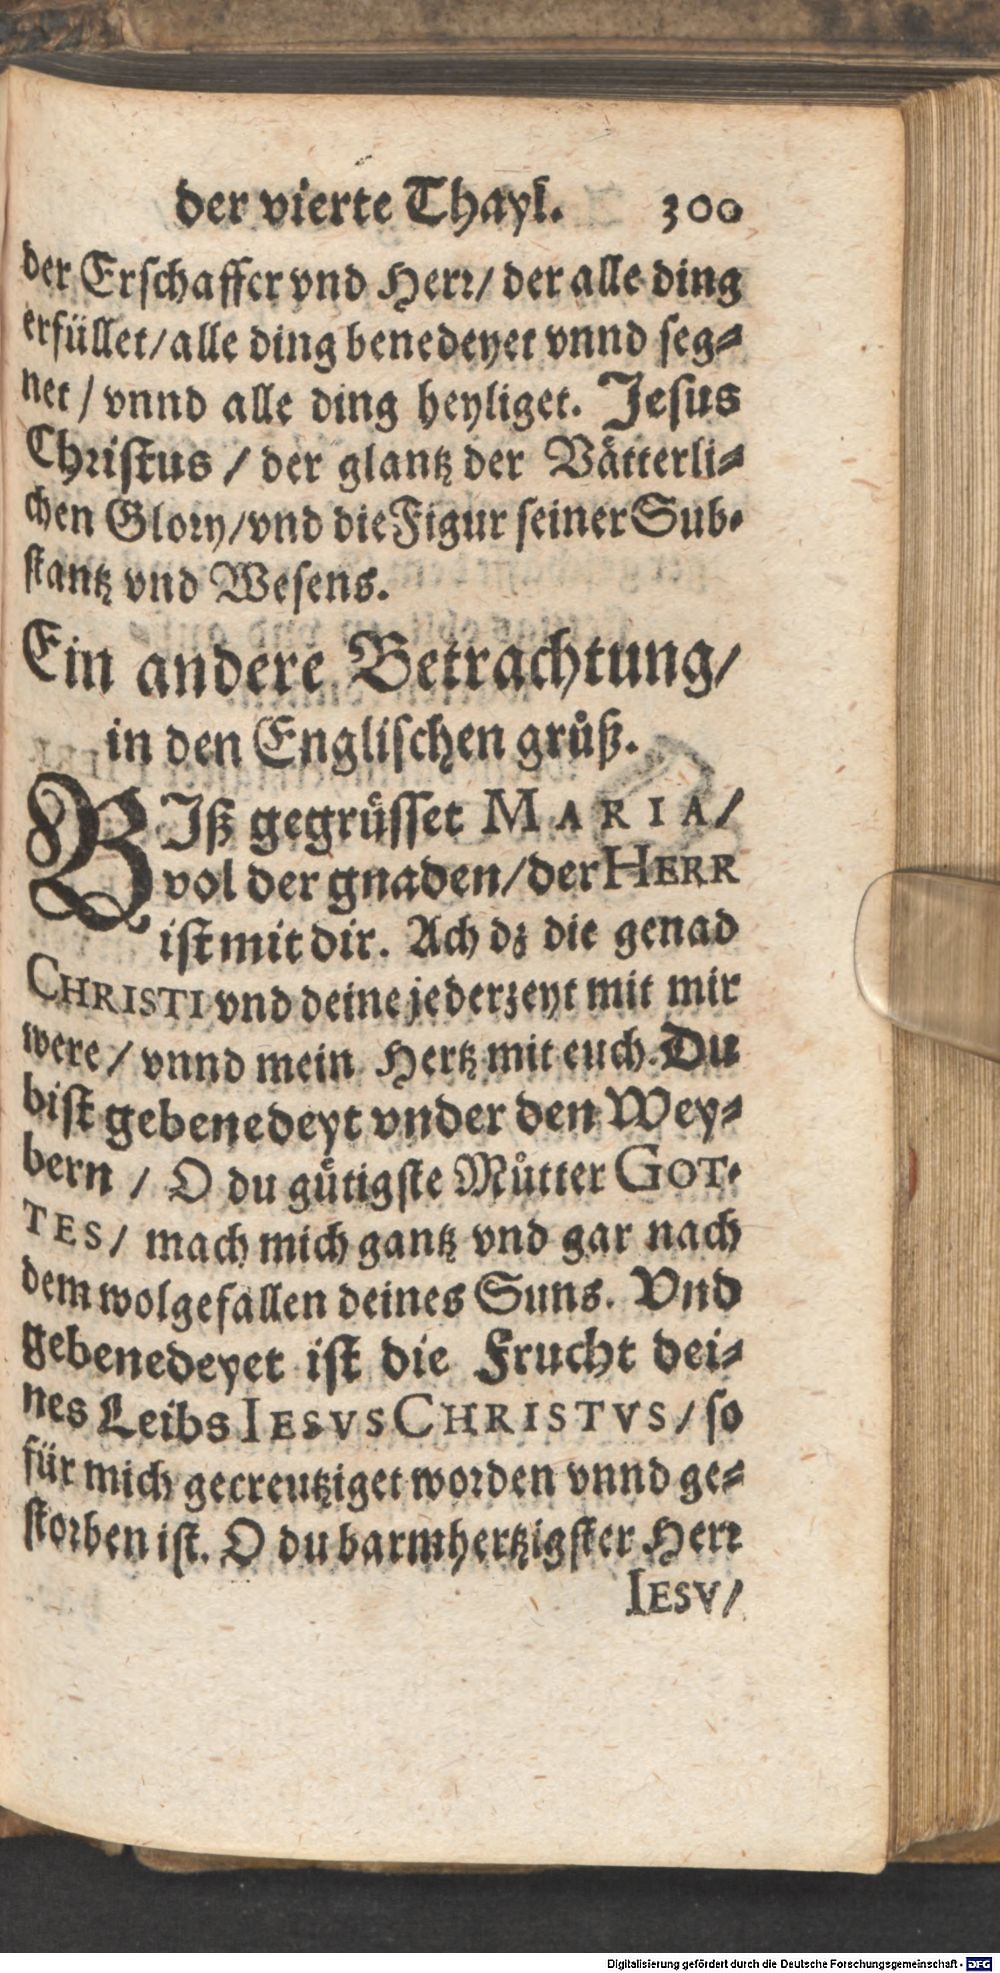 der vierte Thayl. 300
der Erschaffer vnd Herr/ der alle ding
erfüllet/ alle ding benedeyet vnnd seg⸗
net / vnnd alle ding heyliget. Jesus
Christus / der glantz der Vätterli⸗
chen Glory/ vnd die Figur seiner Sub⸗
stantz vnd Wesens.
Ein andere Betrachtung/
in den Englischen grůß.
BIß gegrüsset MARIA/
vol der gnaden/ der HERR
ist mit dir. Ach dz die genad
CHRISTI vnd deine jederzeyt mit mir
were/ vnnd mein Hertz mit euch. Du
bist gebenedeyt vnder den Wey⸗
bern / O du gütigste Můtter GOT⸗
TES/ mach mich gantz vnd gar nach
dem wolgefallen deines Suns. Vnd
gebenedeyet ist die Frucht dei⸗
nes Leibs IESVS CHRISTVS/ so
für mich gecreutziget worden vnnd ge⸗
storben ist. O du barmhertzigster Herr
IESV/
Digitalisierung gefördert durch die Deutsche Forschungsgemeinschaft - DFG